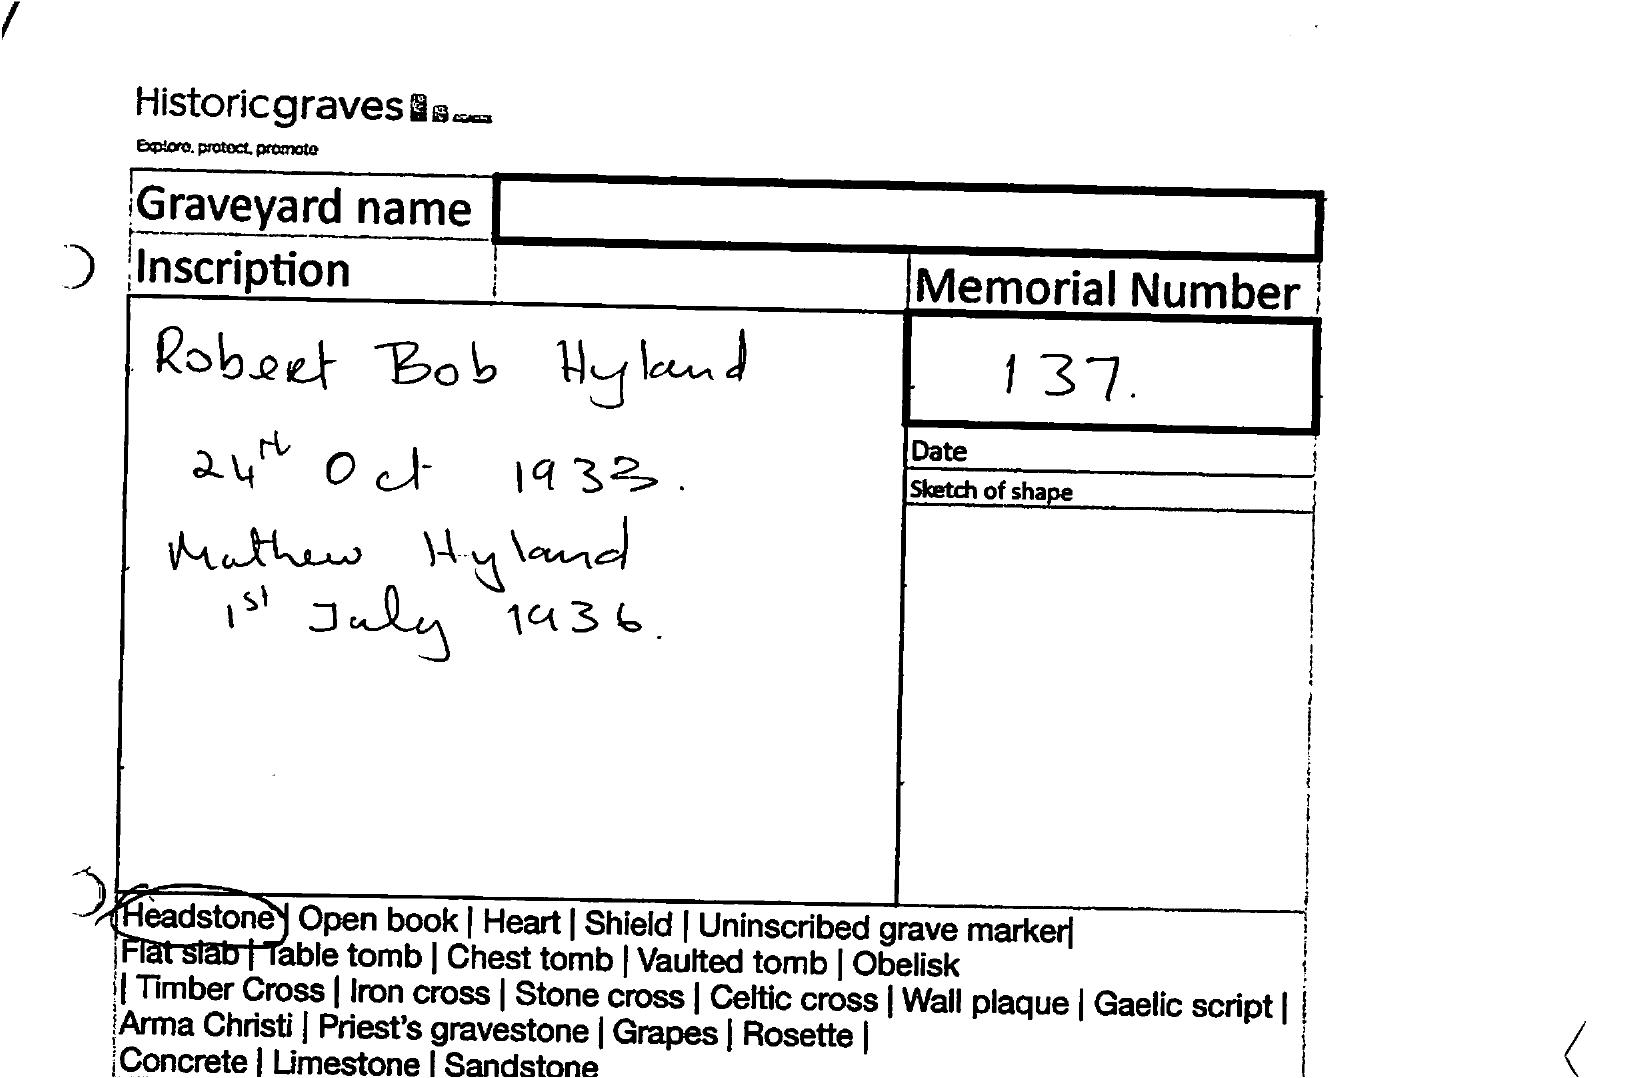 Historicgraves
Explore, protect, promote
Graveyard name
Inscription
Memorial Number
Robert Bob Hyland
137.
24th Oct 1933.
Date
Sketch of shape
Mathew Hyland
1st July 1936.
Headstone | Open book | Heart | Shield | Uninscribed grave marker|
Flat slab | Table tomb | Chest tomb | Vaulted tomb | Obelisk
| Timber Cross | Iron cross | Stone cross | Celtic cross | Wall plaque | Gaelic script |
Arma Christi | Priest's gravestone | Grapes | Rosette |
Concrete | Limestone | Sandstone